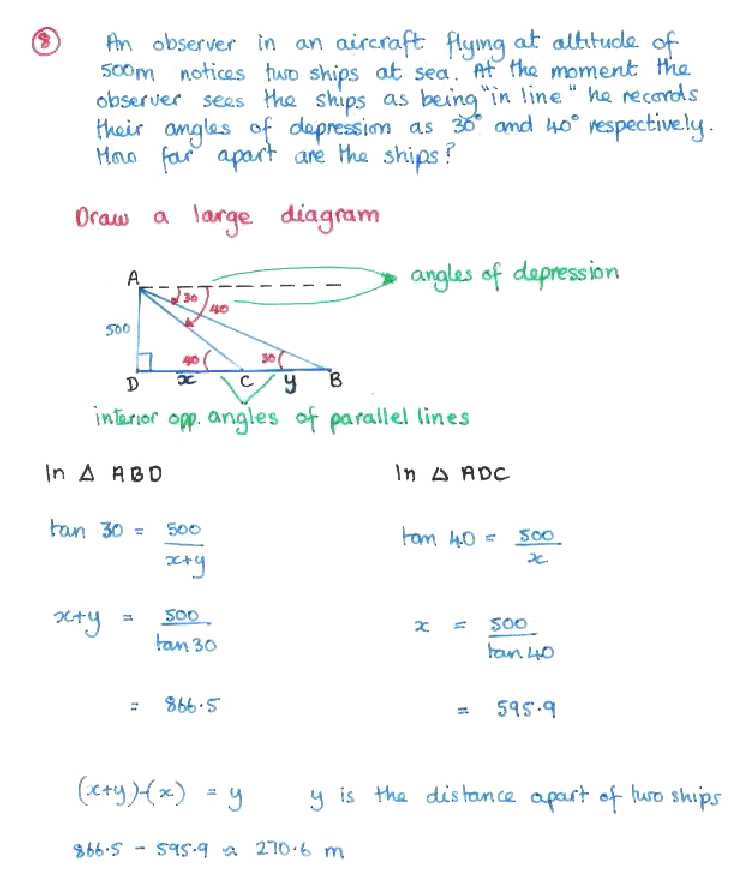 8 An observer in an aircraft flying at altitude of
500m notices two ships at sea. At the moment the
observer sees the ships as being "in line" he records
their angles of depression as 30° and 40° respectively.
How far apart are the ships?
Draw a large diagram
A 30 40 angles of depression
500
40 30
D x C y B
interior opp. angles of parallel lines
In Δ ABD In Δ ADC
tan 30 = 500/x+y tan 40 = 500/x
x+y = 500/tan 30 x = 500/tan 40
= 866.5 = 595.9
(x+y)-(x) = y y is the distance apart of two ships
866.5 - 595.9 = 270.6 m